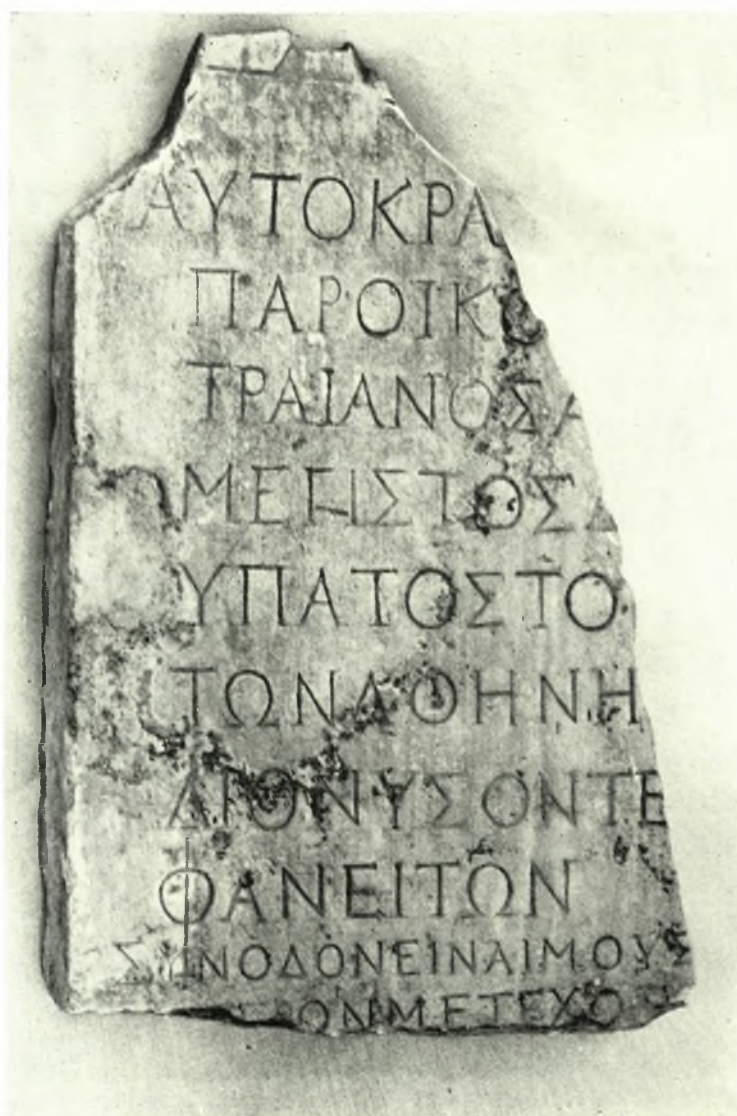 ΑΥΤΟΚΡΑ
ΠΑΡΘΙΚΟ
ΤΡΑΙΑΝΟΣΑ
ΜΕΓΙΣΤΟΣΔ
ΥΠΑΤΟΣΤΟ
ΤΩΝΑΘΗΝΗ
ΔΙΟΝΥΣΟΝΤΕ
ΘΑΝΕΙΤΩΝ
ΣΥΝΟΔΟΝΕΙΝΑΙΜΟΥΣ
ΤΡΟΝΜΕΤΕΧΟ